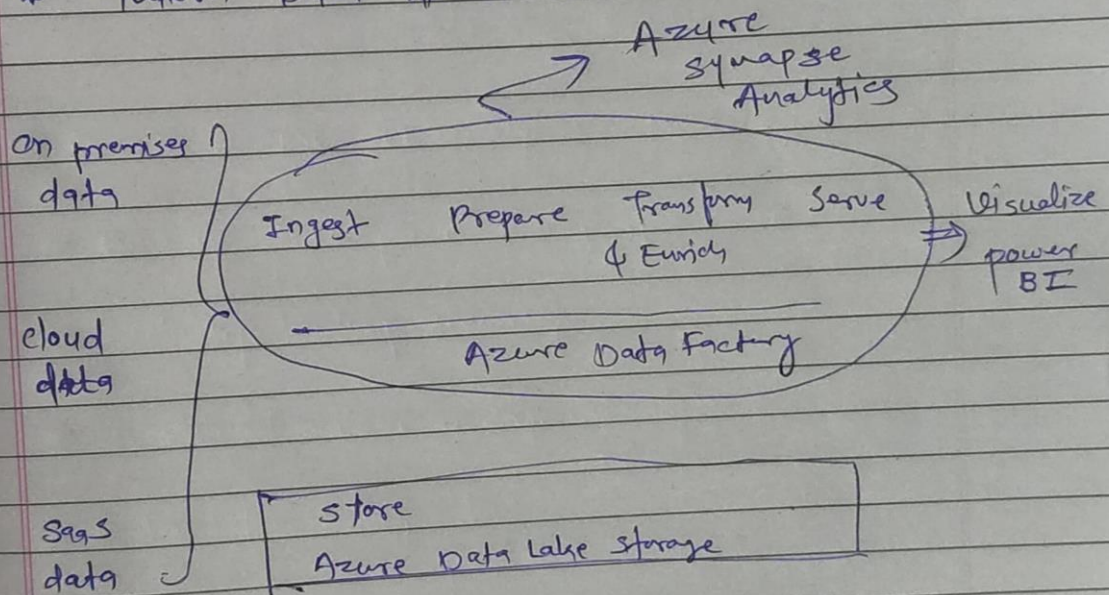 Azure
Synapse
Analytics
On premises
data
Ingest Prepare Transform Serve
& Enrich
Visualize
power
BI
cloud
data
Azure Data Factory
Store
Azure Data Lake Storage
SaaS
data